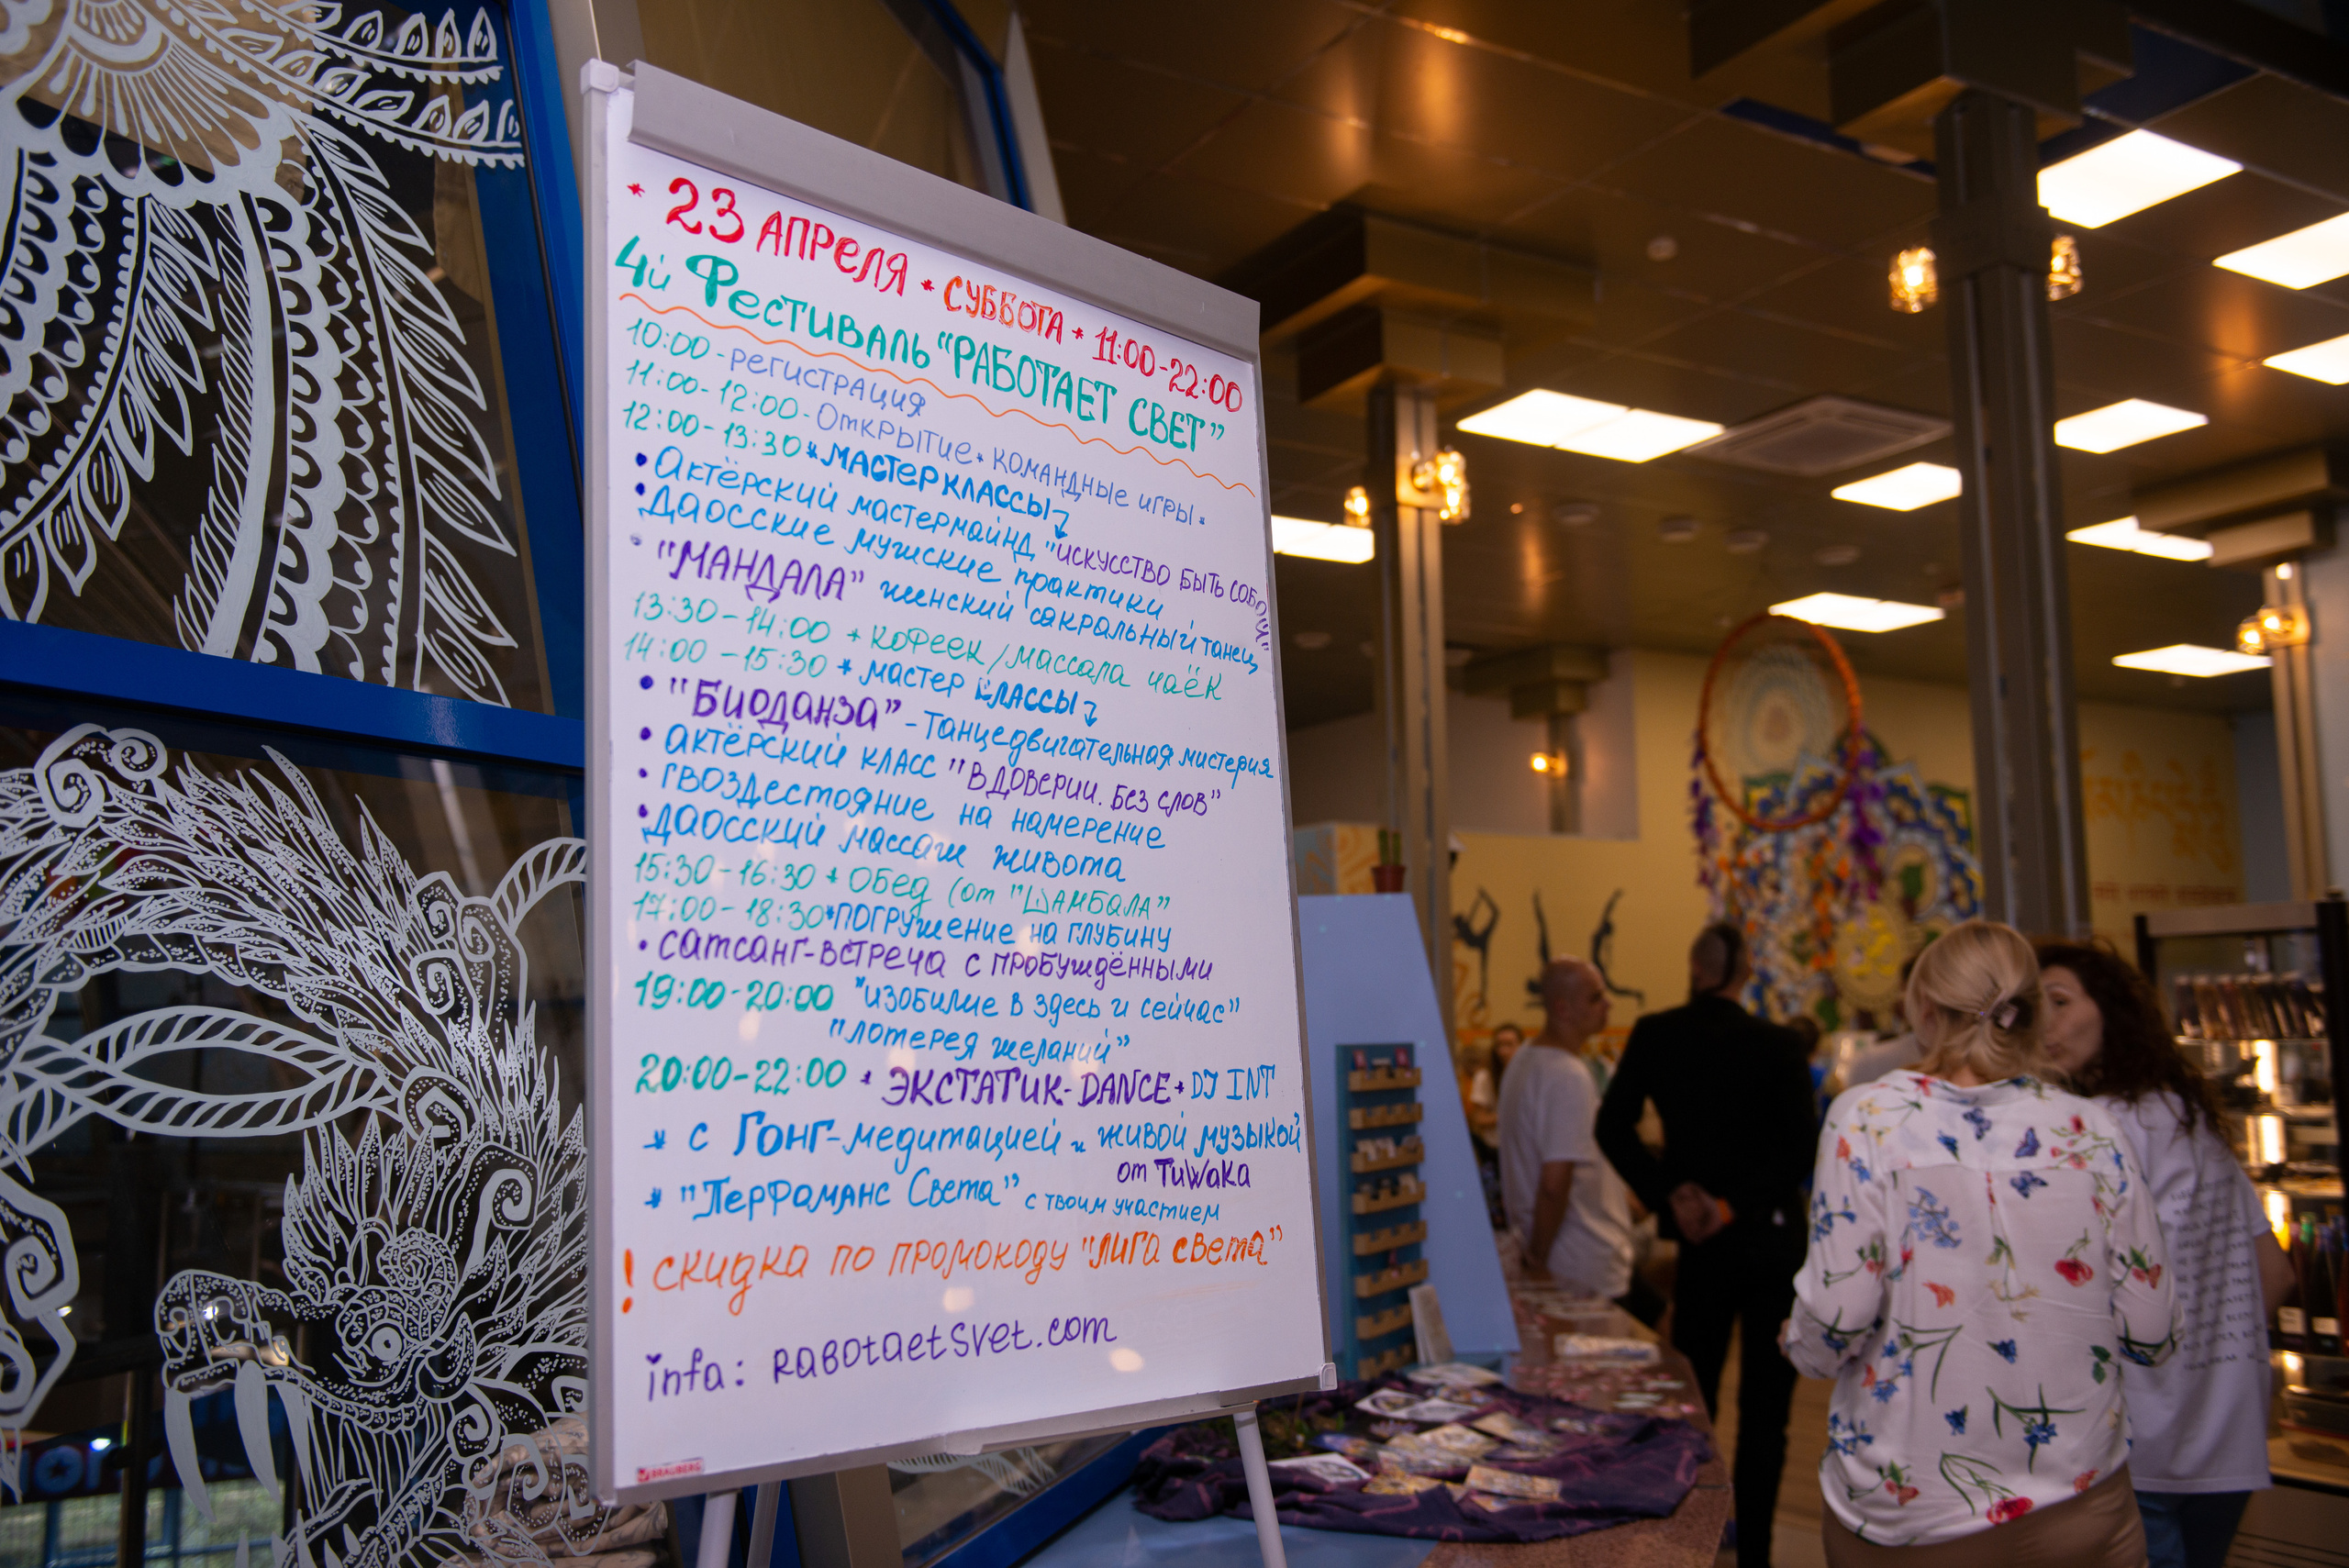 * 23 АПРЕЛЯ * СУББОТА * 11:00-22:00
4й Фестиваль "РАБОТАЕТ СВЕТ"
10:00 - регистрация
11:00 - 12:00 - Открытие * командные игры *
12:00 - 13:30 * мастерклассы ↴
• Актёрский мастермайнд "искусство быть собой"
• Даосские мужские практики
• "МАНДАЛА" женский сакральный танец
13:30 - 14:00 * кофеек / массала чаёк
14:00 - 15:30 * мастер классы ↴
• "Биоданза" - танцедвигательная мистерия
• актёрский класс "В доверии. Без слов"
• гвоздестояние на намерение
• Даосский массаж живота
15:30 - 16:30 * Обед (от "Шамбала"
17:00 - 18:30 * погружение на глубину
• сатсанг-встреча с пробуждёнными
19:00-20:00 "изобилие в здесь и сейчас"
"лотерея желаний"
20:00-22:00 * ЭКСТАТИК-DANCE * DJ INT
* с Гонг-медитацией и живой музыкой
от TuWaka
* "Перфоманс Света" с твоим участием
! скидка по промокоду "лига света"
infa: RabotaetSvet.com
BRAUBERG